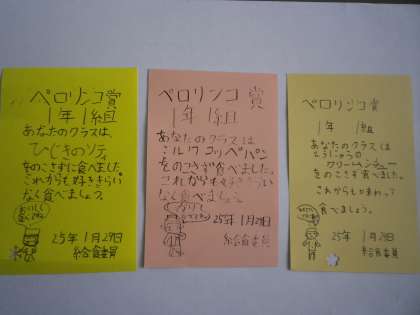 ペロリンコ賞
1年 1組
あなたのクラスは、
ひじきのソテー
をのこさずに食べました。
これからも好ききらい
なく食べましょう。
25年 1月29日
給食委員
ペロリンコ 賞
1年 1組
あなたのクラスは
ミルクコッペパン
をのこさず食べました。
これからも好ききらい
なく食べましょう。
25年 1月29日
給食委員
ペロリンコ賞
1年 1組
あなたのクラスは
クリームシチュー
をのこさず食べました。
これからもかわって
食べましょう。
25年 1月29日
給食委員